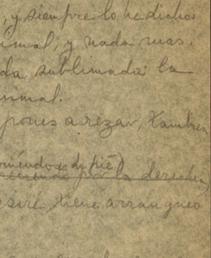 , y siempre lo he dicho
imal, y nada mas.
da, sublimada la
nimal.
pones a rezar, tambien
niendose de pié)
la derecha)
siré, tiene arranques